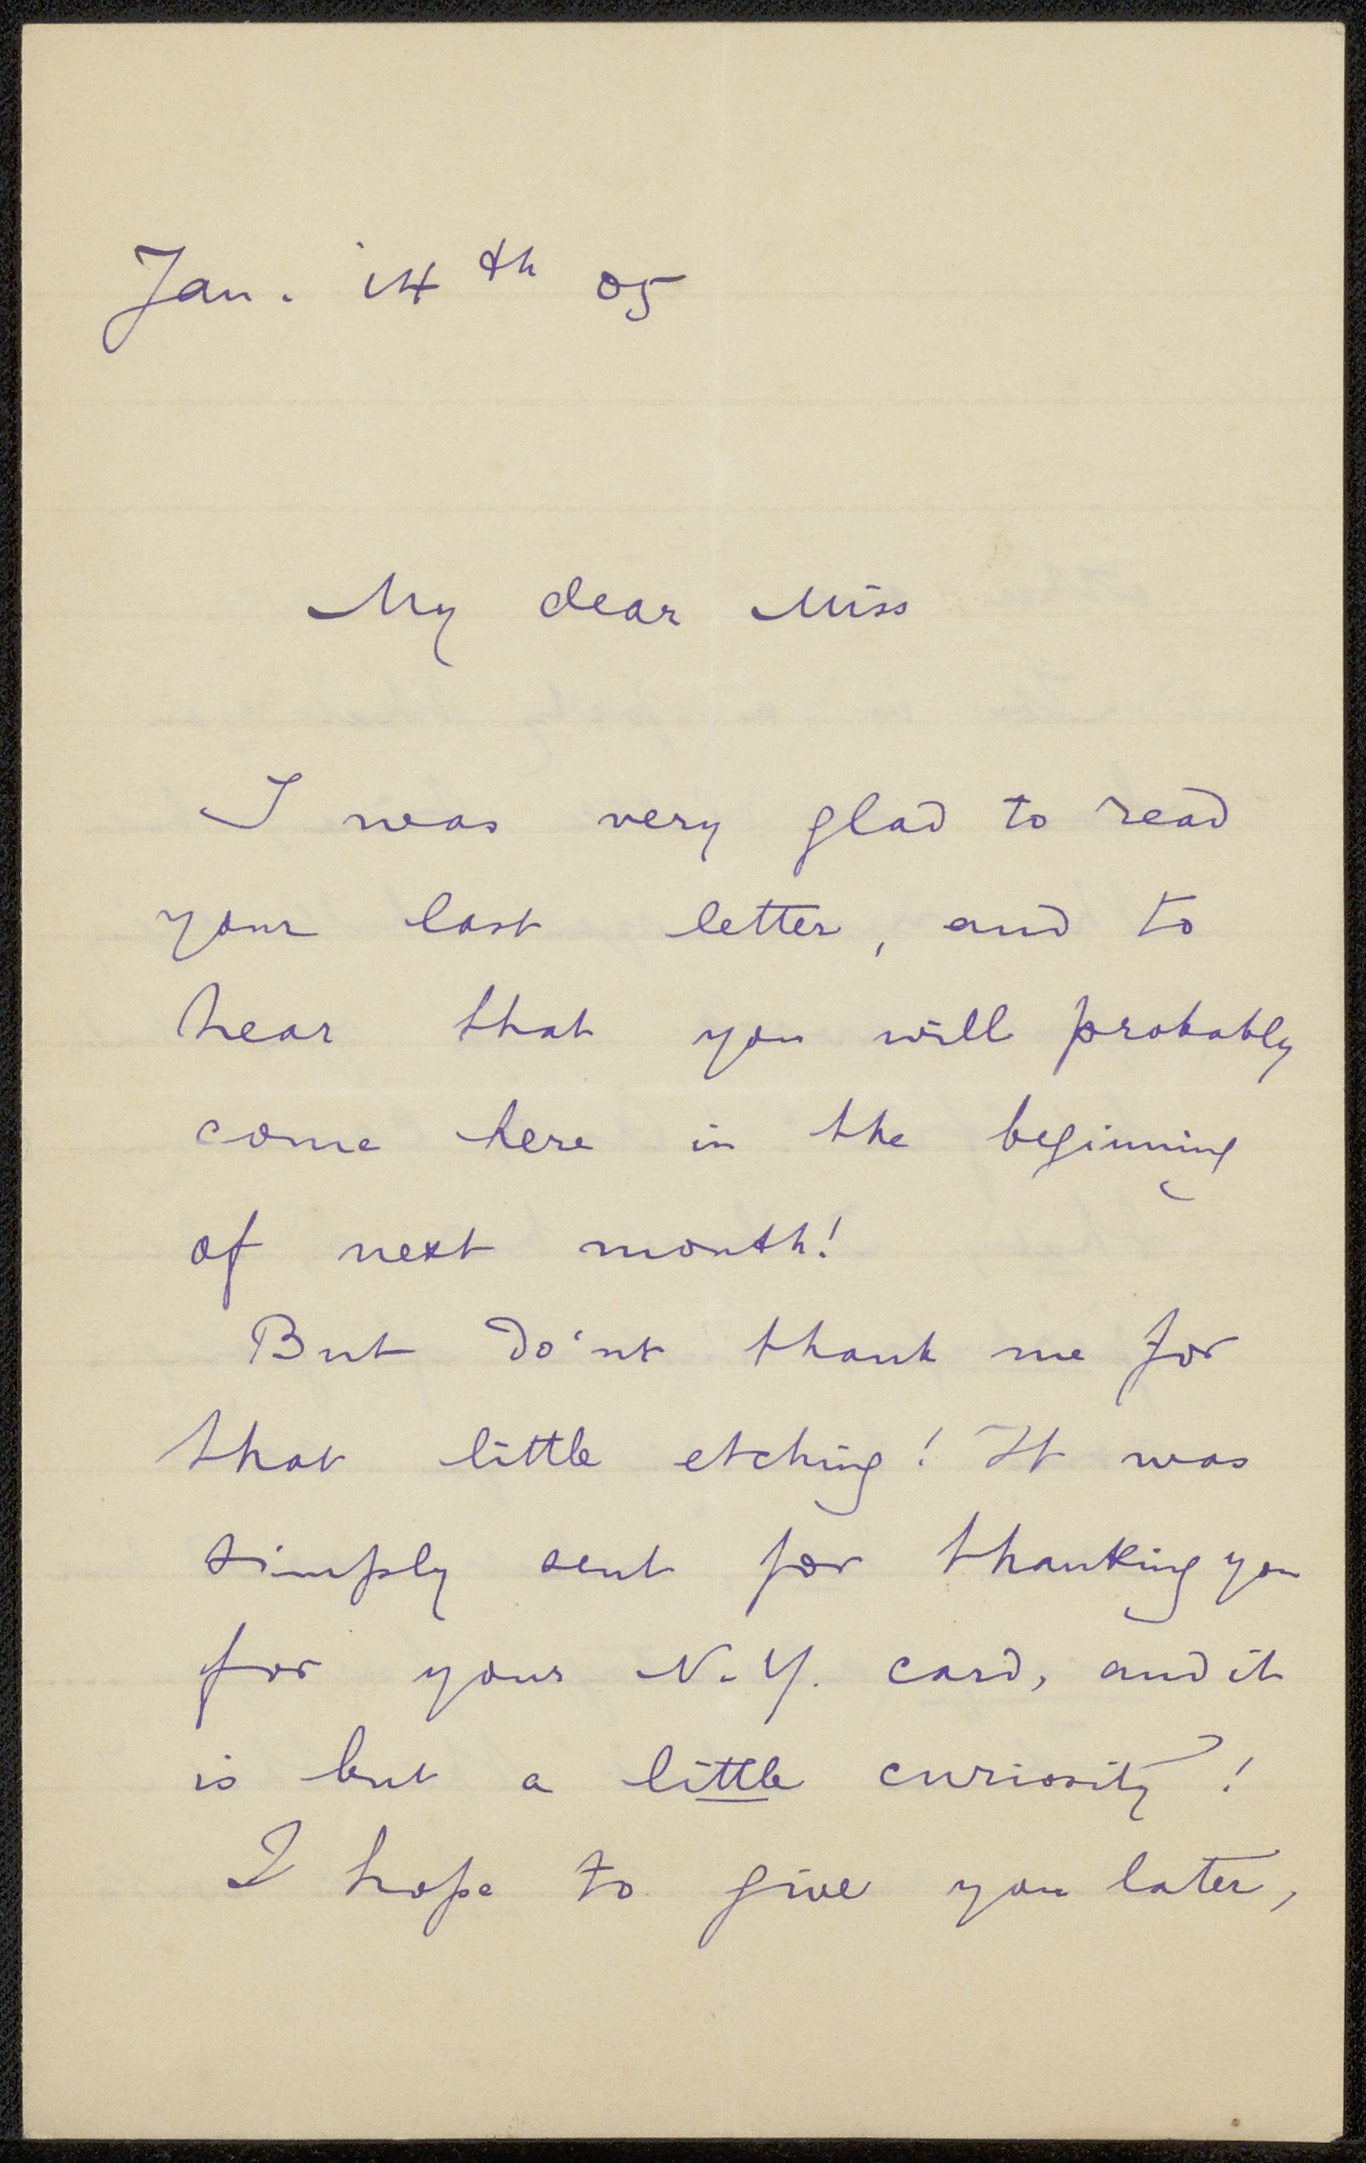 Jan. 14th 05
My dear Miss
I was very glad to read
your last letter, and to
hear that you will probably
come here in the beginning
of next month!
But do'nt thank me for
that little etching! It was
simply sent for thanking you
for your N.Y. card, and it
is but a little curiosity!
I hope to give you later,